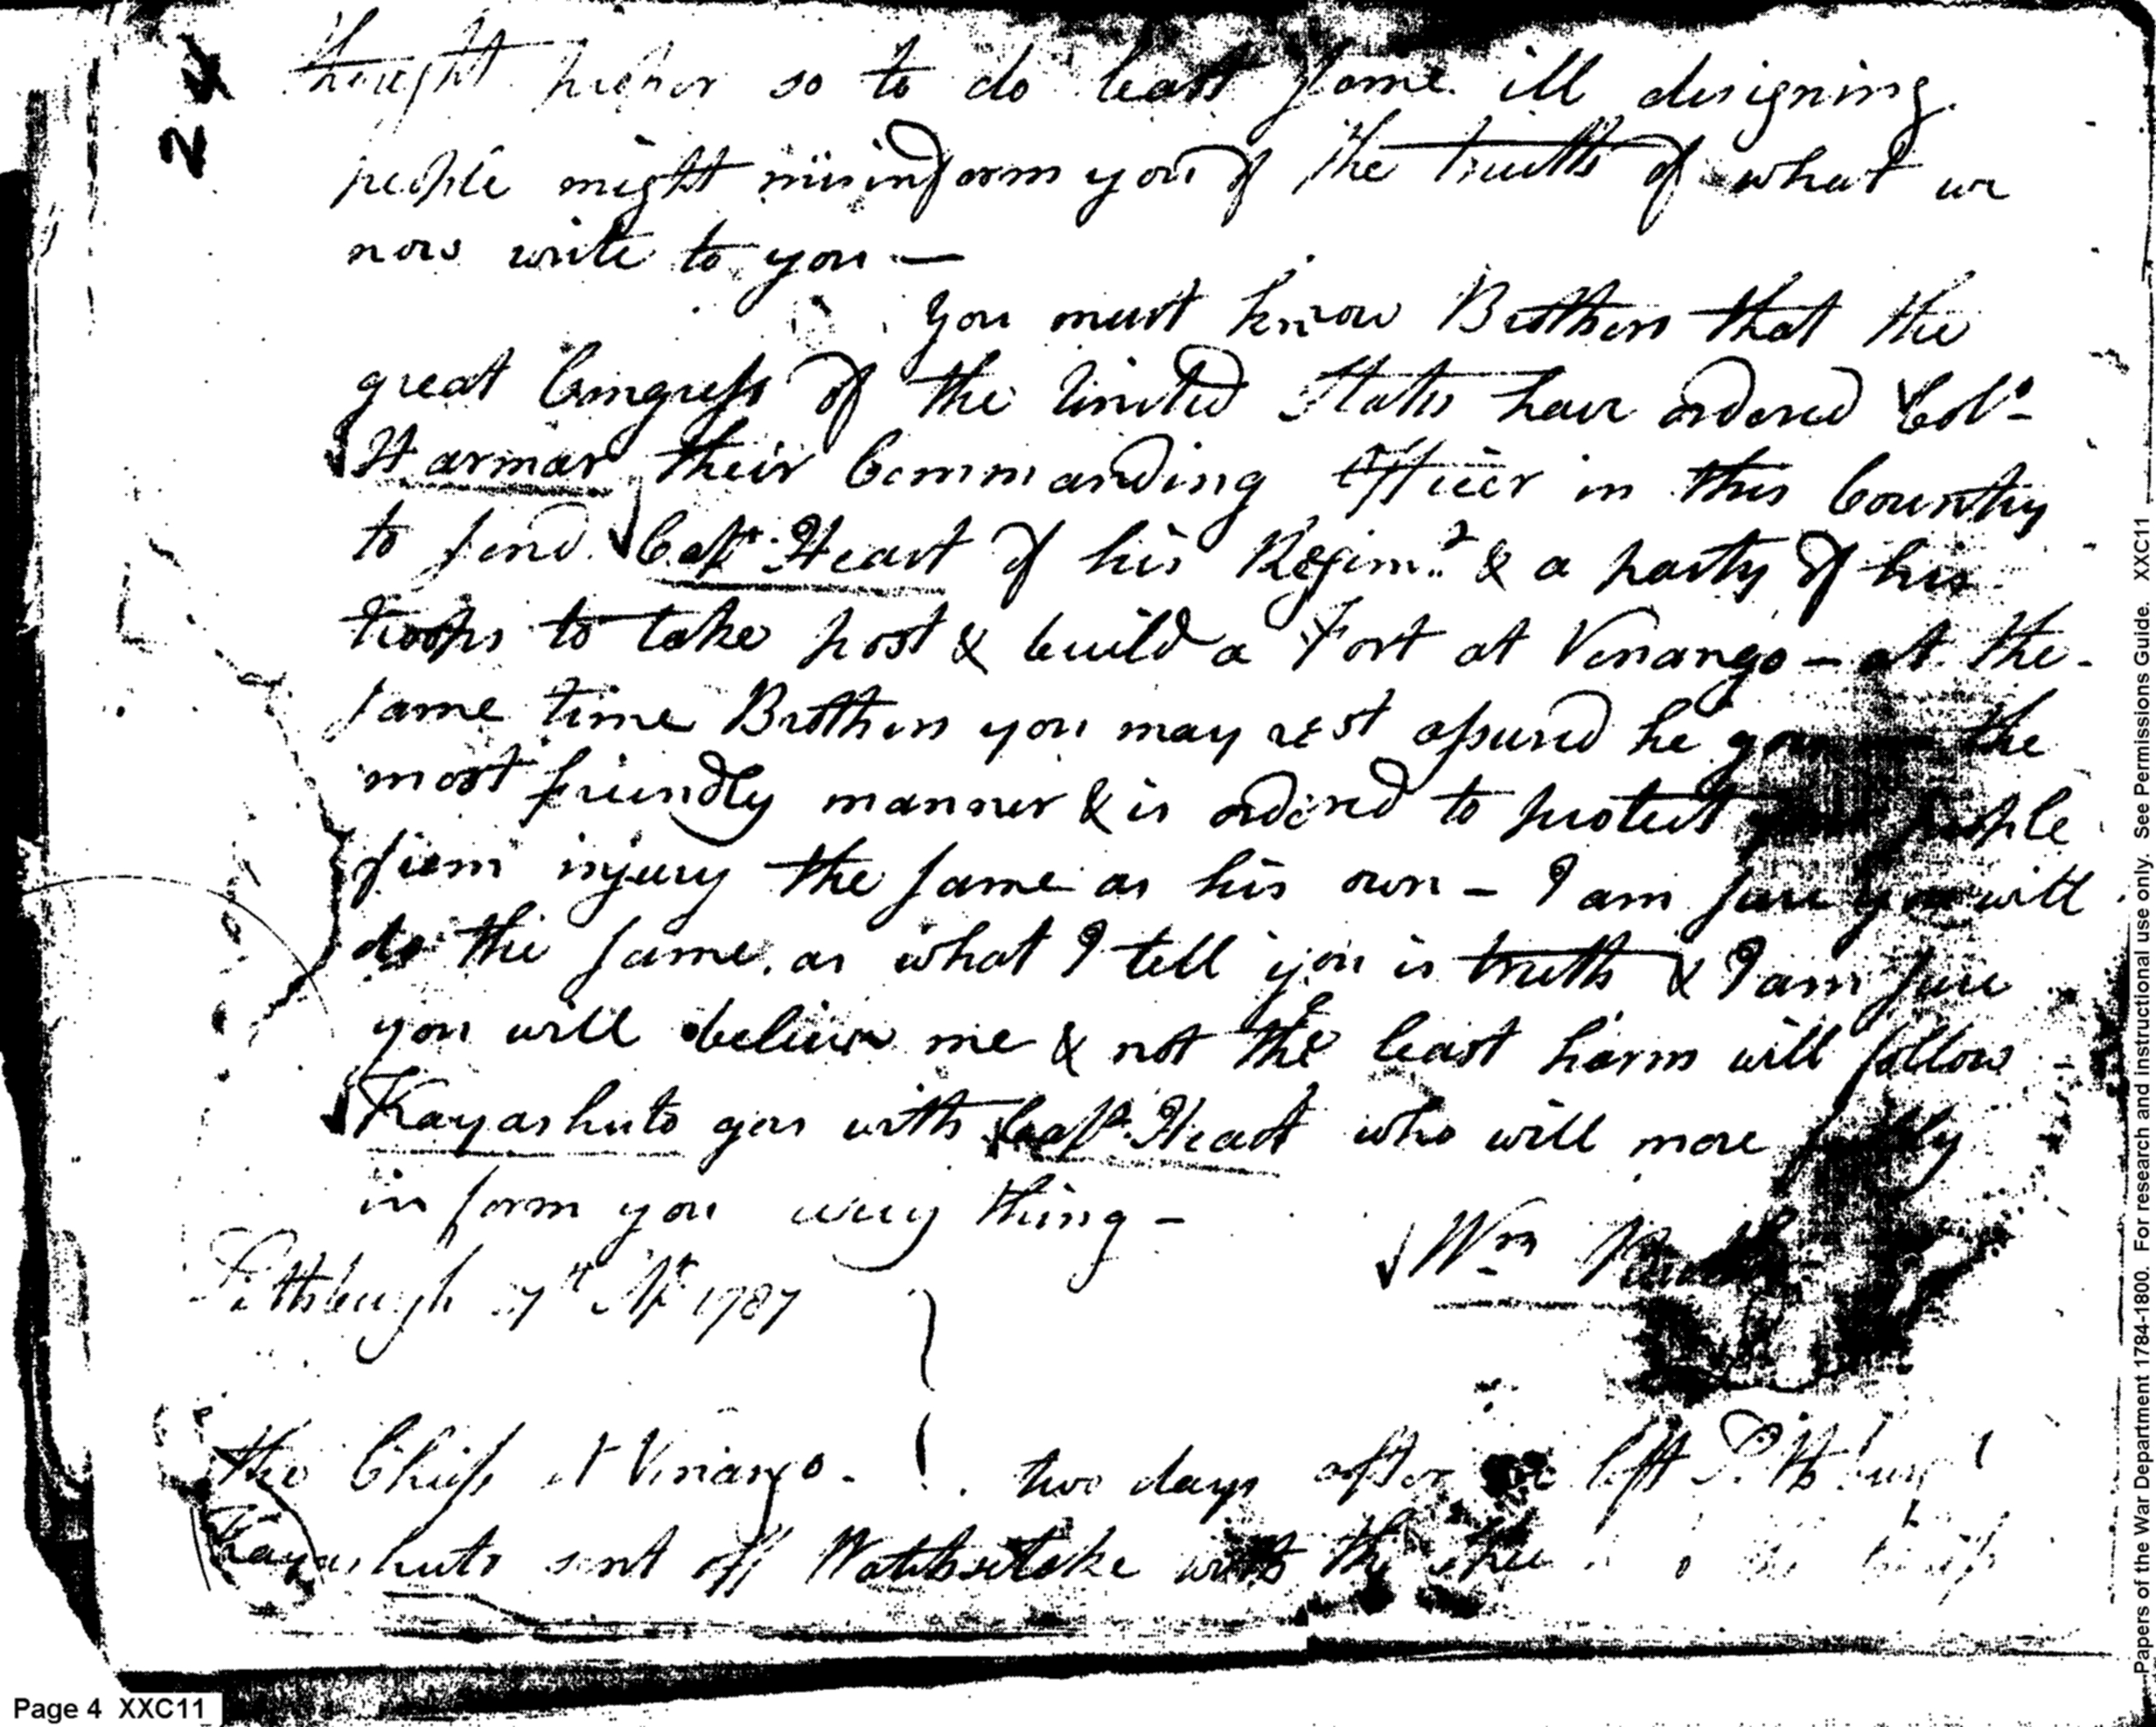 2
thought proper so to do least some ill designing
people might misinform you of the truth of what we
now write to you —
You must know Brothers that the
great Congress of the United States have ordered Colo.
Harmar their Commanding Officer in this Country
to send Capt. Heart of his Regimt. & a party of his
troops to take post & build a Fort at Venango – at the
same time Brothers you may rest assured he the
most friendly manner & is ordered to protect people
from injury the same as his own – I am sure you will
do the same, as what I tell you is truth & I am sure
you will believe me & not the least harm will follow
Kayashuto goes with Capt. Heart who will more fully
inform you every thing –
Wm
Pittsburgh 7th Apl 1787
the Chiefs at Venango. two days after left Pittsburg
Kayashuto sent off with the
Page 4 XXC11
Papers of the War Department 1784-1800. For research and instructional use only. See Permissions Guide. XXC11